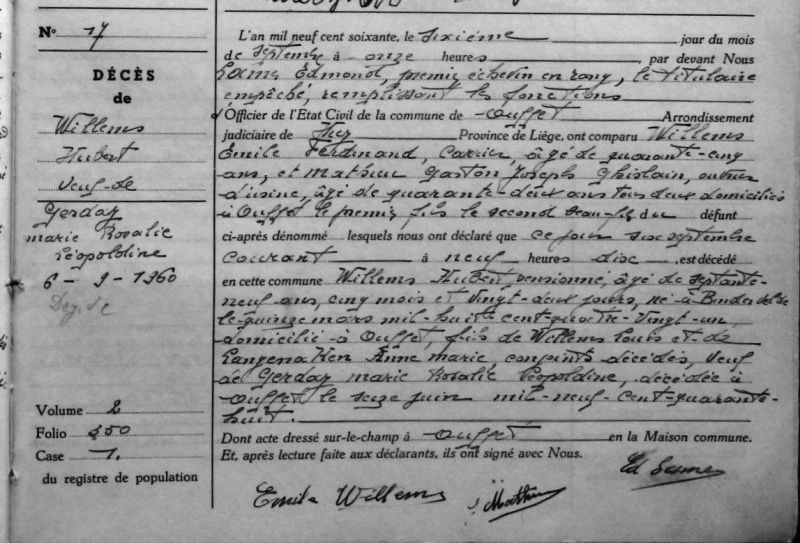 Nº 17
DÉCÈS
de
Willems
Hubert
veuf de
Gerday
marie Rosalie
Léopoldine
6 - 9 - 1960
Volume 2
Folio 350
Case 1.
du registre de population
L'an mil neuf cent soixante, le sixième jour du mois
de septembre à onze heures, par devant Nous
Edmond, premier échevin en rang, le titulaire
empêché, remplissant les fonctions
d'Officier de l'Etat Civil de la commune de Ouffet Arrondissement
judiciaire de Huy Province de Liège, ont comparu Willems
Emile Ferdinand, Carrier, âgé de quarante-cinq
ans, et Mathieu Gaston Joseph Ghislain, ouvrier
d'usine, âgé de quarante-deux ans tous deux domiciliés
à Ouffet le premier fils le second beau-fils du défunt
ci-après dénommé lesquels nous ont déclaré que ce jour six septembre
courant à neuf heures dix, est décédé
en cette commune Willems Hubert, pensionné, âgé de septante-
neuf ans, cinq mois et vingt-deux jours, né à
le quinze mars mil-huit-cent-quatre-vingt-un,
domicilié à Ouffet, fils de Willems Louis et de
Anne marie, conjoints décédés, veuf
de Gerday marie Rosalie Léopoldine, décédée à
Ouffet le seize juin mil-neuf-cent-quarante-
huit.
Dont acte dressé sur-le-champ à Ouffet en la Maison commune.
Et, après lecture faite aux déclarants, ils ont signé avec Nous.
Emile Willems